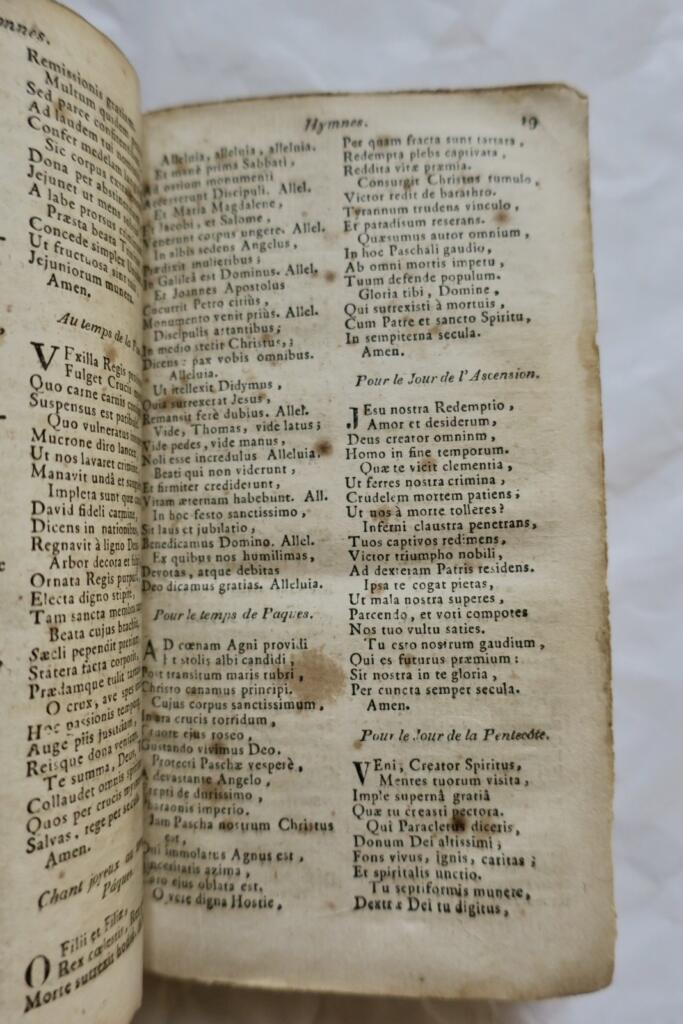 Remissionis
Multum quidem
Sed parce
Ad laudem tui
Confer medelam
Sic corpus
Dona per
Jejunet ut mens
A labe prorsus
Præsta beata
Concede simplex
Ut fructuosa sint
Jejuniorum munera.
Amen.
Au temps de la
VExilla Regis
Fulget Crucis
Quo carne carnis
Suspensus est
Quo vulneratus
Mucrone diro lanceæ
Ut nos lavaret
Manavit undâ et
Impleta sunt quæ
David fideli carmine,
Dicens in nationibus
Regnavit à ligno Deus
Arbor decora et
Ornata Regis
Electa digno stipite,
Tam sancta membra
Beata cujus brachiis
Sæcli pependit
Statera facta corporis,
Prædamque tulit
O crux, ave spes
Hoc passionis tempore
Auge piis justitiam,
Reisque dona veniam.
Te summa, Deus,
Collaudet omnis
Quos per crucis
Salvas, rege per
Amen.
Chant joyeux au
Pâques.
O Filii et Filiæ,
Rex cœlestis, Rex
Morte surrexit hodie.
Hymnes. 19
Alleluia, alleluia, alleluia.
Et mane prima Sabbati,
Ad ostium monumenti
Accesserunt Discipuli. Allel.
Et Maria Magdalene,
Et Jacobi, et Salome,
Venerunt corpus ungere. Allel.
In albis sedens Angelus,
Prædixit mulieribus;
In Galileâ est Dominus. Allel.
Et Joannes Apostolus
Cucurrit Petro citiùs,
Monumento venit priùs. Allel.
Discipulis astantibus;
In medio stetit Christus,;
Dicens: pax vobis omnibus.
Alleluia.
Ut itellexit Didymus,
Quia surrexerat Jesus,
Remansit ferè dubius. Allel.
Vide, Thomas, vide latus;
Vide pedes, vide manus,
Noli esse incredulus Alleluia.
Beati qui non viderunt,
Et firmiter crediderunt,
Vitam æternam habebunt. All.
In hoc festo sanctissimo,
Sit laus et jubilatio,
Benedicamus Domino. Allel.
Ex quibus nos humilimas,
Devotas, atque debitas
Deo dicamus gratias. Alleluia.
Pour le temps de Paques.
AD cœnam Agni providi
Et stolis albi candidi,
Post transitum maris rubri,
Christo canamus principi.
Cujus corpus sanctissimum,
In ara crucis torridum,
Cruore ejus roseo,
Gustando vivimus Deo.
Protecti Paschæ vesperè,
A devastante Angelo,
Erepti de durissimo,
Pharaonis imperio.
Jam Pascha nostrum Christus
est,
Qui immolatus Agnus est,
Sinceritatis azima,
Caro ejus oblata est.
O vere digna Hostie,
Per quam fracta sunt tartara,
Redempta plebs captivata,
Reddita vitæ præmia.
Consurgit Christus tumulo,
Victor redit de barathro.
Tyrannum trudens vinculo,
Et paradisum reserans.
Quæsumus autor omnium,
In hoc Paschali gaudio,
Ab omni mortis impetu,
Tuum defende populum.
Gloria tibi, Domine,
Qui surrexisti à mortuis,
Cum Patre et sancto Spiritu,
In sempiterna secula.
Amen.
Pour le Jour de l'Ascension.
JEsu nostra Redemptio,
Amor et desiderum,
Deus creator omninm,
Homo in fine temporum.
Quæ te vicit clementia,
Ut ferres nostra crimina,
Crudelem mortem patiens;
Ut nos à morte tolleres?
Inferni claustra penetrans,
Tuos captivos redimens,
Victor triumpho nobili,
Ad dexteram Patris residens.
Ipsa te cogat pietas,
Ut mala nostra superes,
Parcendo, et voti compotes
Nos tuo vultu saties.
Tu esto nostrum gaudium,
Qui es futurus præmium:
Sit nostra in te gloria,
Per cuncta semper secula.
Amen.
Pour le Jour de la Pentecôte.
VEni, Creator Spiritus,
Mentes tuorum visita,
Imple supernâ gratiâ
Quæ tu creasti pectora.
Qui Paracletus diceris,
Donum Dei altissimi;
Fons vivus, ignis, caritas;
Et spiritalis unctio.
Tu septiformis munere,
Dextræ Dei tu digitus,